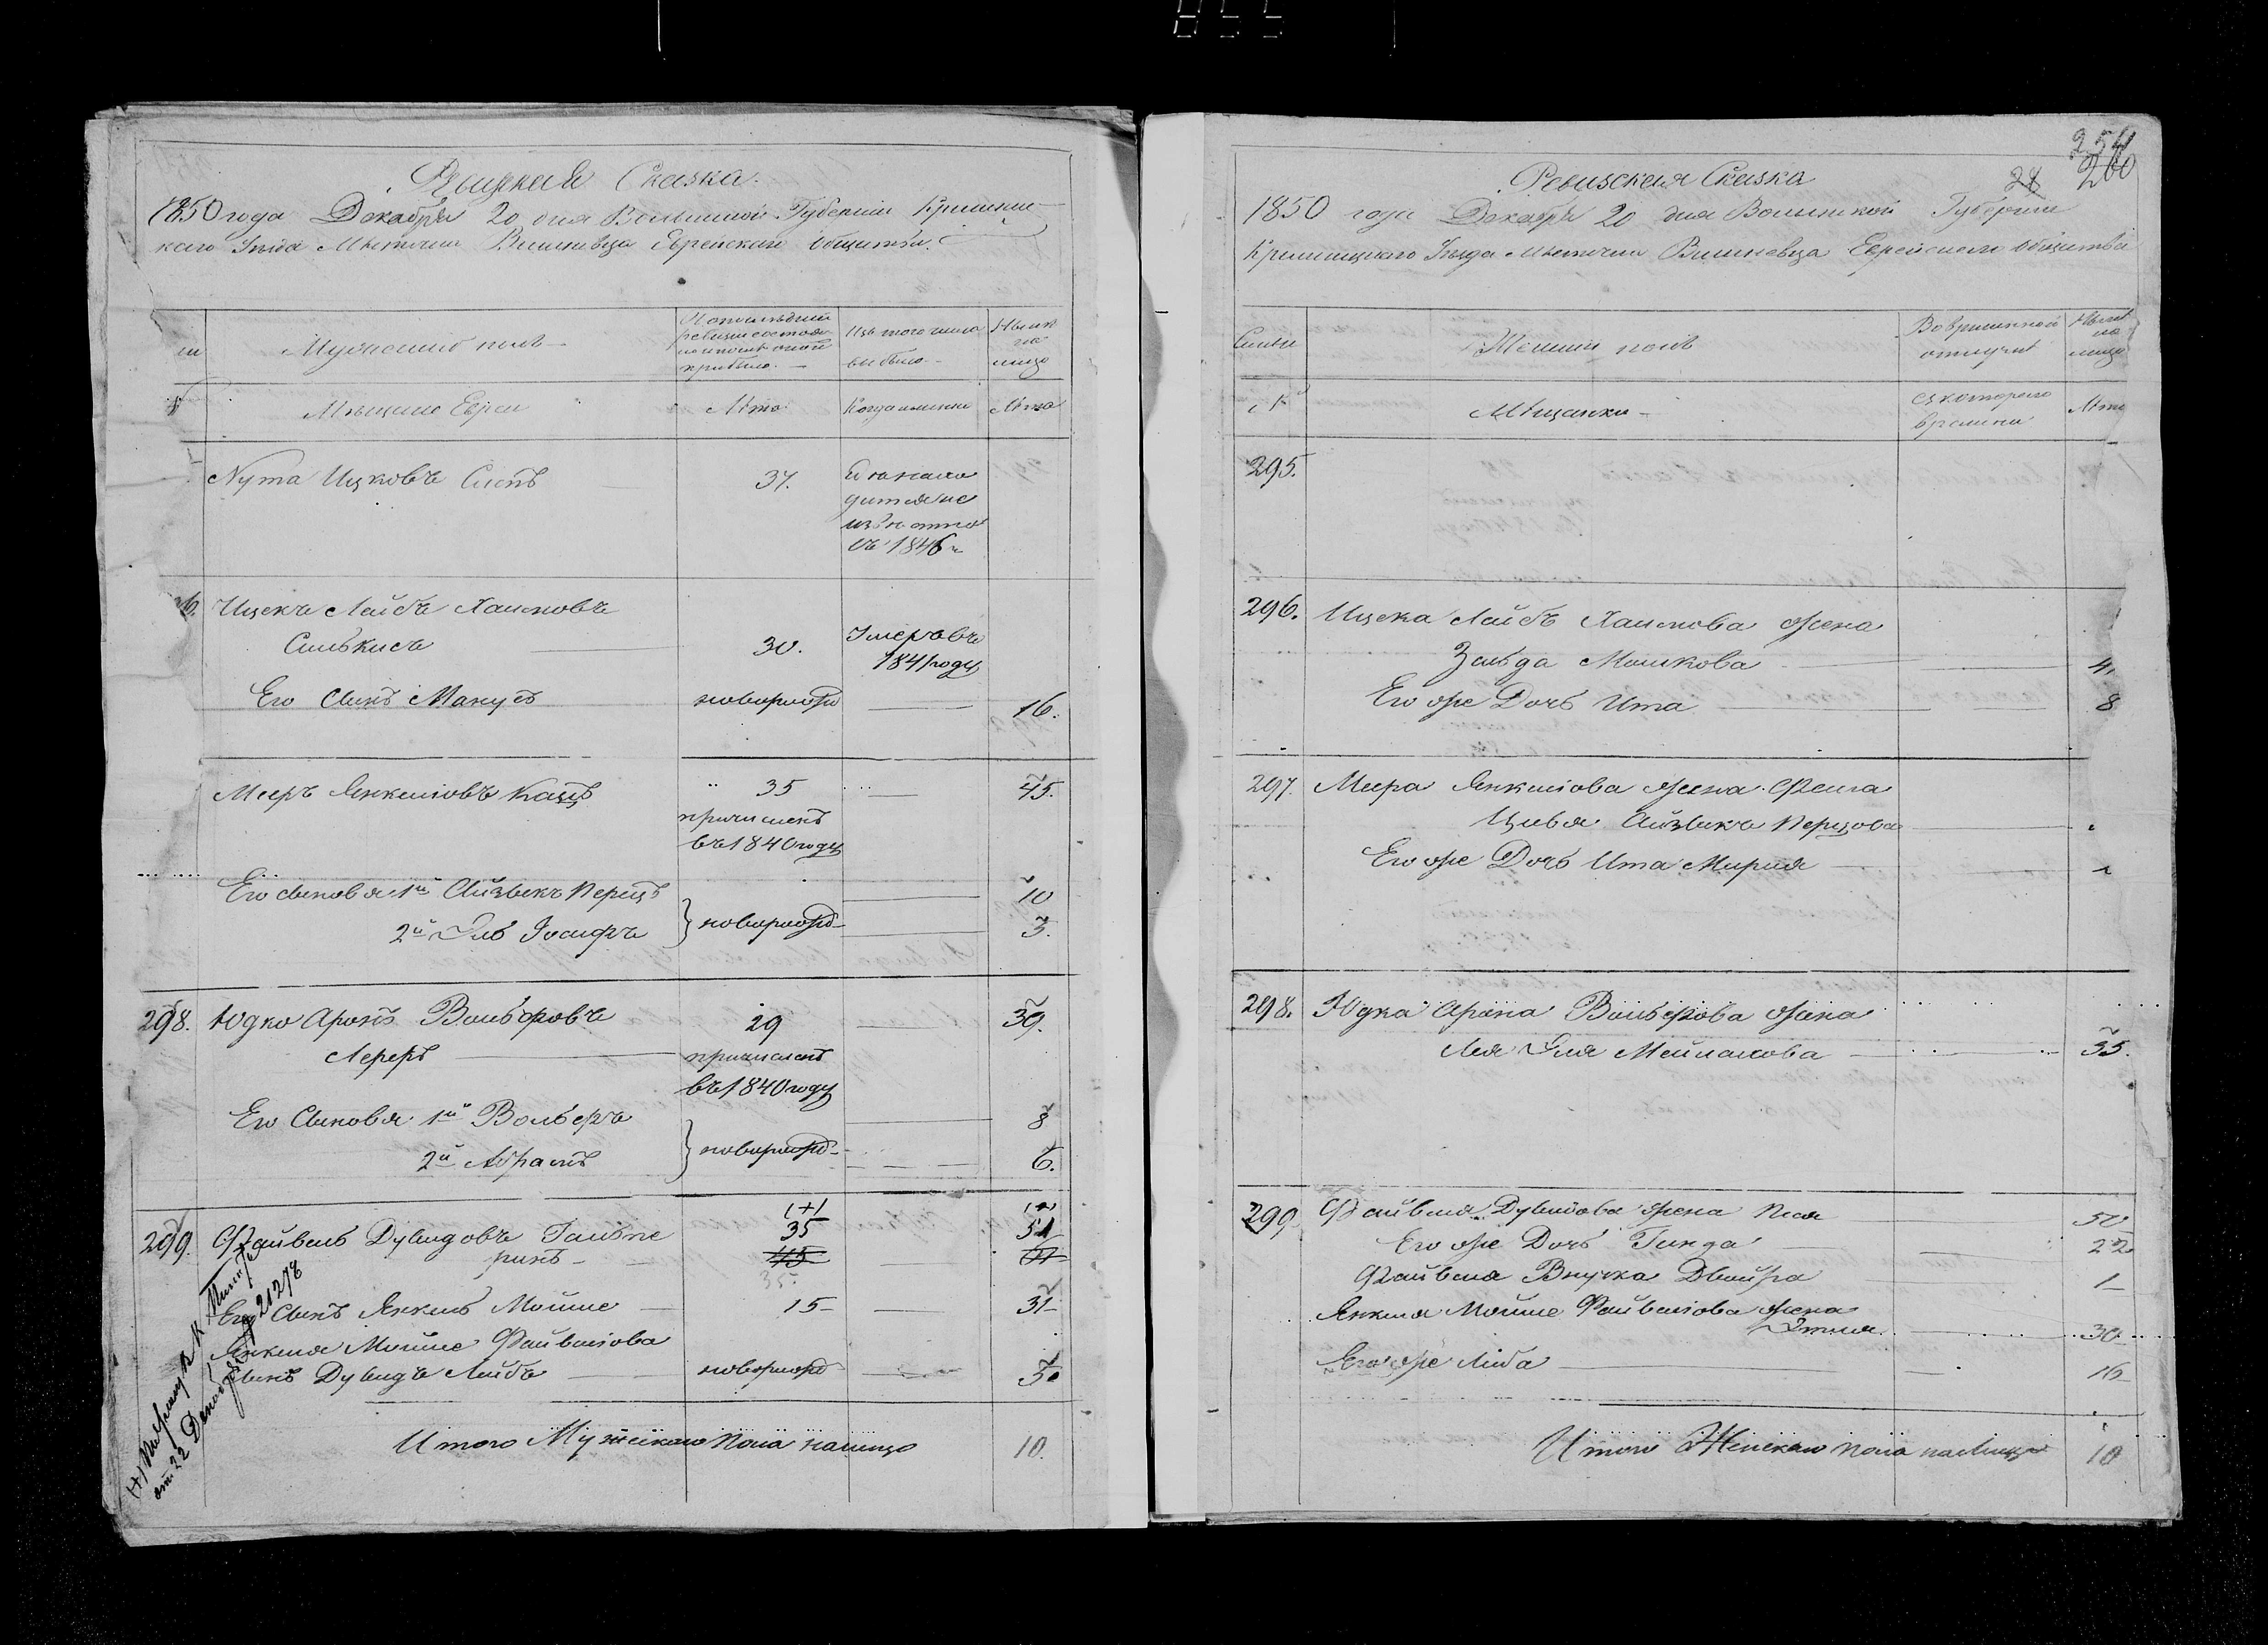 Ревизская Сказка.
1850 года Декабря 20 дня Волынской Губернии Кременец-
каго Уезда Местечка Вишневца Еврейскаго общества.
Мужеский полъ
Изъ того числа выбыло
Ныне на лицо
Мещане Евреи
Лета
Когда именно
Лета
Нута Ицковъ Сынъ 37.
съ 1846 г
6. Ицекъ Лейбъ Хаимовъ
30. Умеръ въ
1841 году
Его Сынъ Манусъ новорожд 16.
Мееръ Янкелювъ Кацъ 35 45.
причисленъ
въ 1840 году
Его сыновья 1й Айзыкъ Перецъ 10
2й Эль Іосифъ новорожд 3.
298. Юдко Аронъ Вольфовъ 29 39.
Лерер причисленъ
въ 1840 году
Его Сыновья 1й Вольфъ 8
2й Абрамъ новорожд 6.
(+) (+)
299. Файвель Дувидовъ Гальпе 35 51
ринъ 45
35.
Его Сынъ Янкель Мойше 15 31
Янкеля Мойше Файвелюва
Сынъ Дувидъ Лейбъ новорожд 5.
Итого Мужескаго пола налицо 10.
от 22 Декабря 21278
254
260
28
Ревизская Сказка
1850 года Декабря 20 дня Волынской Губернии
Кременецкаго Уезда Местечка Вишневца Еврейскаго общества
Семьи
Женский полъ
Во временной отлучке
Ныне на лицо
Мещанки
съ котораго времени
Лета
295.
296. Ицека Лейбъ Хаимова жена
Зельда Мошкова 4
Его же Дочь Ита 8
297. Меера Янкелюва жена Фейга
Цивья Айзыкъ Перцова
Его же Дочь Ита Мирия
298. Юдка Арона Вольфова жена
Лея Эля Мейлахова 35.
299. Файвеля Дувидова жена Пея 50
Его же Дочь Гинда 22
Файвеля Внучка Двойра 1
Янкеля Мойше Файвелюва жена
Этля 30
Его же Либа 16
Итого Женскаго пола налицо 10